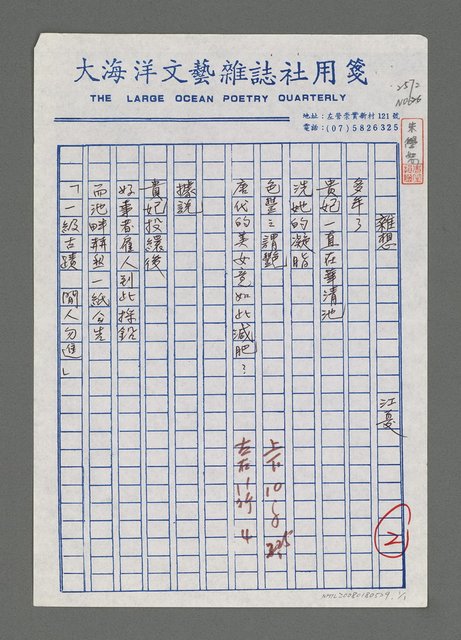 大海洋文藝雜誌社用箋
THE LARGE OCEAN POETRY QUARTERLY
地址：左營崇實新村121號
電話：(07)5826325
雜想
江憂
多年了
貴妃一直在華清池
洗她的凝脂
色豐之謂艷
唐代的美女竟如此減肥？
據說
貴妃投繯後
好事者雇人到此採鉛
而池畔赫然一紙公告
「一級古蹟 閒人勿進」
2
NMTL20080180529 1/1